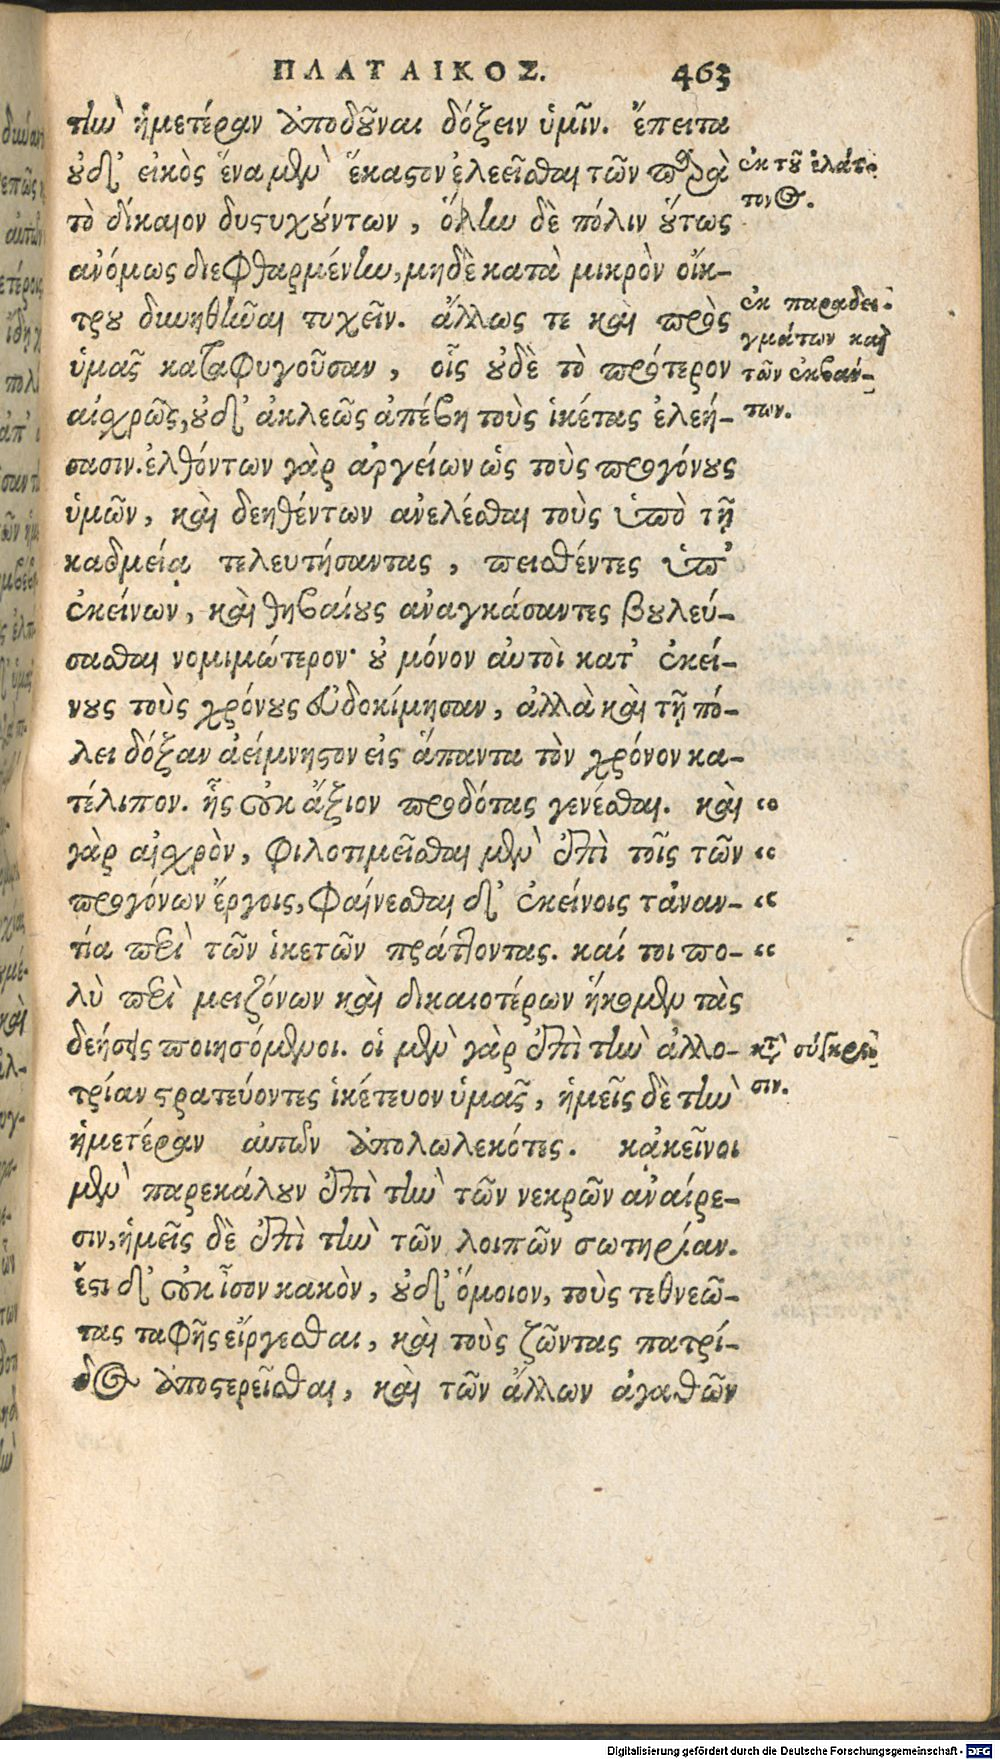 ΠΛΑΤΑΙΚΟΣ. 463
τὴν ἡμετέραν ἀποδοῦναι δόξειν ὑμῖν. ἔπειτα
οὐδ' εἰκὸς ἕνα μὲν ἕκαστον ἐλεεῖσθαι τῶν παρὰ
ἐκ τοῦ ἐλάτ-
τονος.
τὸ δίκαιον δυστυχούντων, ὅλην δὲ πόλιν οὕτως
ἀνόμως διεφθαρμένην, μηδὲ κατὰ μικρὸν οἴκ-
του δυνηθῆναι τυχεῖν. ἄλλως τε καὶ πρὸς
ἐκ παραδει-
γμάτων καὶ
τῶν ἐκβάν-
των.
ὑμᾶς καταφυγοῦσαν, οἷς οὐδὲ τὸ πρότερον
αἰσχρῶς, οὐδ' ἀκλεῶς ἀπέβη τοὺς ἱκέτας ἐλεή-
σασιν. ἐλθόντων γὰρ ἀργείων ὡς τοὺς προγόνους
ὑμῶν, καὶ δεηθέντων ἀνελέσθαι τοὺς ὑπὸ τῇ
καδμείᾳ τελευτήσαντας, πεισθέντες ὑπ'
ἐκείνων, καὶ θηβαίους ἀναγκάσαντες βουλεύ-
σασθαι νομιμώτερον· οὐ μόνον αὐτοὶ κατ' ἐκεί-
νους τοὺς χρόνους εὐδοκίμησαν, ἀλλὰ καὶ τῇ πό-
λει δόξαν ἀείμνηστον εἰς ἅπαντα τὸν χρόνον κα-
τέλιπον. ἧς οὐκ ἄξιον προδότας γενέσθαι. καὶ “
γὰρ αἰσχρὸν, φιλοτιμεῖσθαι μὲν ἐπὶ τοῖς τῶν “
προγόνων ἔργοις, φαίνεσθαι δ' ἐκείνοις τἀναν- “
τία περὶ τῶν ἱκετῶν πράττοντας. καί τοι πο- “
λὺ περὶ μειζόνων καὶ δικαιοτέρων ἥκομεν τὰς
δεήσεις ποιησόμενοι. οἱ μὲν γὰρ ἐπὶ τὴν ἀλλο-
κατὰ σύγκρι-
σιν.
τρίαν στρατεύοντες ἱκέτευον ὑμᾶς, ἡμεῖς δὲ τὴν
ἡμετέραν αὐτῶν ἀπολωλεκότες. κἀκεῖνοι
μὲν παρεκάλουν ἐπὶ τὴν τῶν νεκρῶν ἀναίρε-
σιν, ἡμεῖς δὲ ἐπὶ τὴν τῶν λοιπῶν σωτηρίαν.
ἔστι δ' οὐκ ἴσον κακὸν, οὐδ' ὅμοιον, τοὺς τεθνεῶ-
τας ταφῆς εἴργεσθαι, καὶ τοὺς ζῶντας πατρί-
δος ἀποστερεῖσθαι, καὶ τῶν ἄλλων ἀγαθῶν
Digitalisierung gefördert durch die Deutsche Forschungsgemeinschaft - DFG